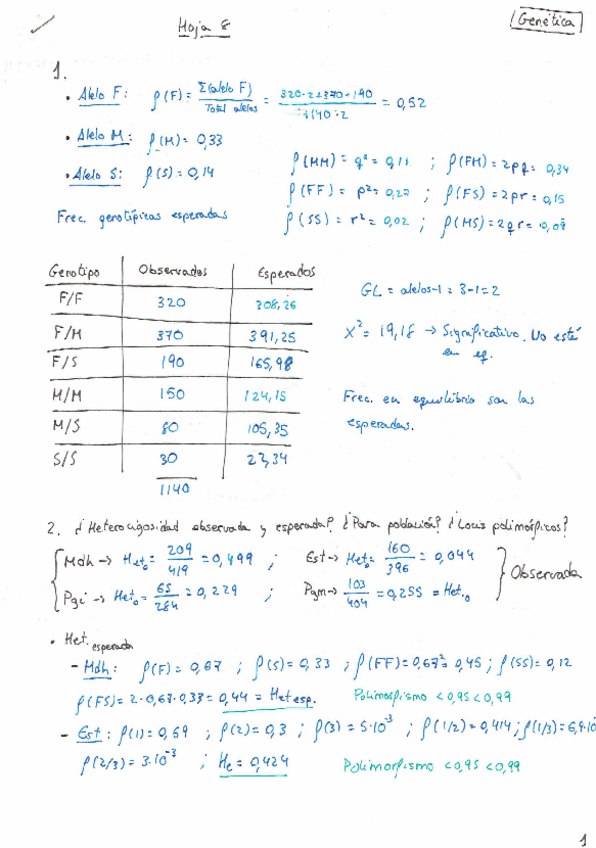 Hoja 8
Genética
1.
• Alelo F: ρ(F) = Σ(alelo F) / Total alelos = 320·2+370+190 / 1140·2 = 0,52
• Alelo M: ρ(M) = 0,33
• Alelo S: ρ(S) = 0,14
ρ(MM) = q² = 0,11 ; ρ(FM) = 2pq = 0,34
ρ(FF) = p² = 0,27 ; ρ(FS) = 2pr = 0,15
ρ(SS) = r² = 0,02 ; ρ(MS) = 2qr = 0,09
Frec. genotípicas esperadas
Genotipo Observados Esperados
F/F 320 308,26
F/M 370 391,25
F/S 190 165,98
M/M 150 124,15
M/S 80 105,35
S/S 30 22,34
1140
GL = alelos-1 = 3-1 = 2
X² = 19,18 → Significativo. No está
en eq.
Frec. en equilibrio son las
esperadas.
2. ¿Heterocigosidad observada y esperada? ¿Para población? ¿Locis polimórficos?
Mdh → Het₀ = 209/419 = 0,499 ; Est → Het₀ = 160/396 = 0,044
Pgi → Het₀ = 65/284 = 0,229 ; Pgm → 103/404 = 0,255 = Het.₀
Observada
• Het. esperada
- Mdh: ρ(F) = 0,67 ; ρ(S) = 0,33 ; ρ(FF) = 0,67² = 0,45 ; ρ(SS) = 0,12
ρ(FS) = 2·0,67·0,33 = 0,44 = Het esp. Polimorfismo <0,95 <0,99
- Est: ρ(1) = 0,69 ; ρ(2) = 0,3 ; ρ(3) = 5·10⁻³ ; ρ(1/2) = 0,414 ; ρ(1/3) = 6,9·10
ρ(2/3) = 3·10⁻³ ; He = 0,424 Polimorfismo <0,95 <0,99
1